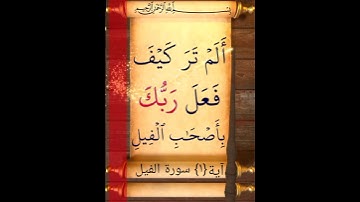 بسم الله الرحمن الرحيم
أَلَمۡ تَرَ كَيۡفَ
فَعَلَ رَبُّكَ
بِأَصۡحَٰبِ ٱلۡفِيلِ
آية {١} سورة الفيل